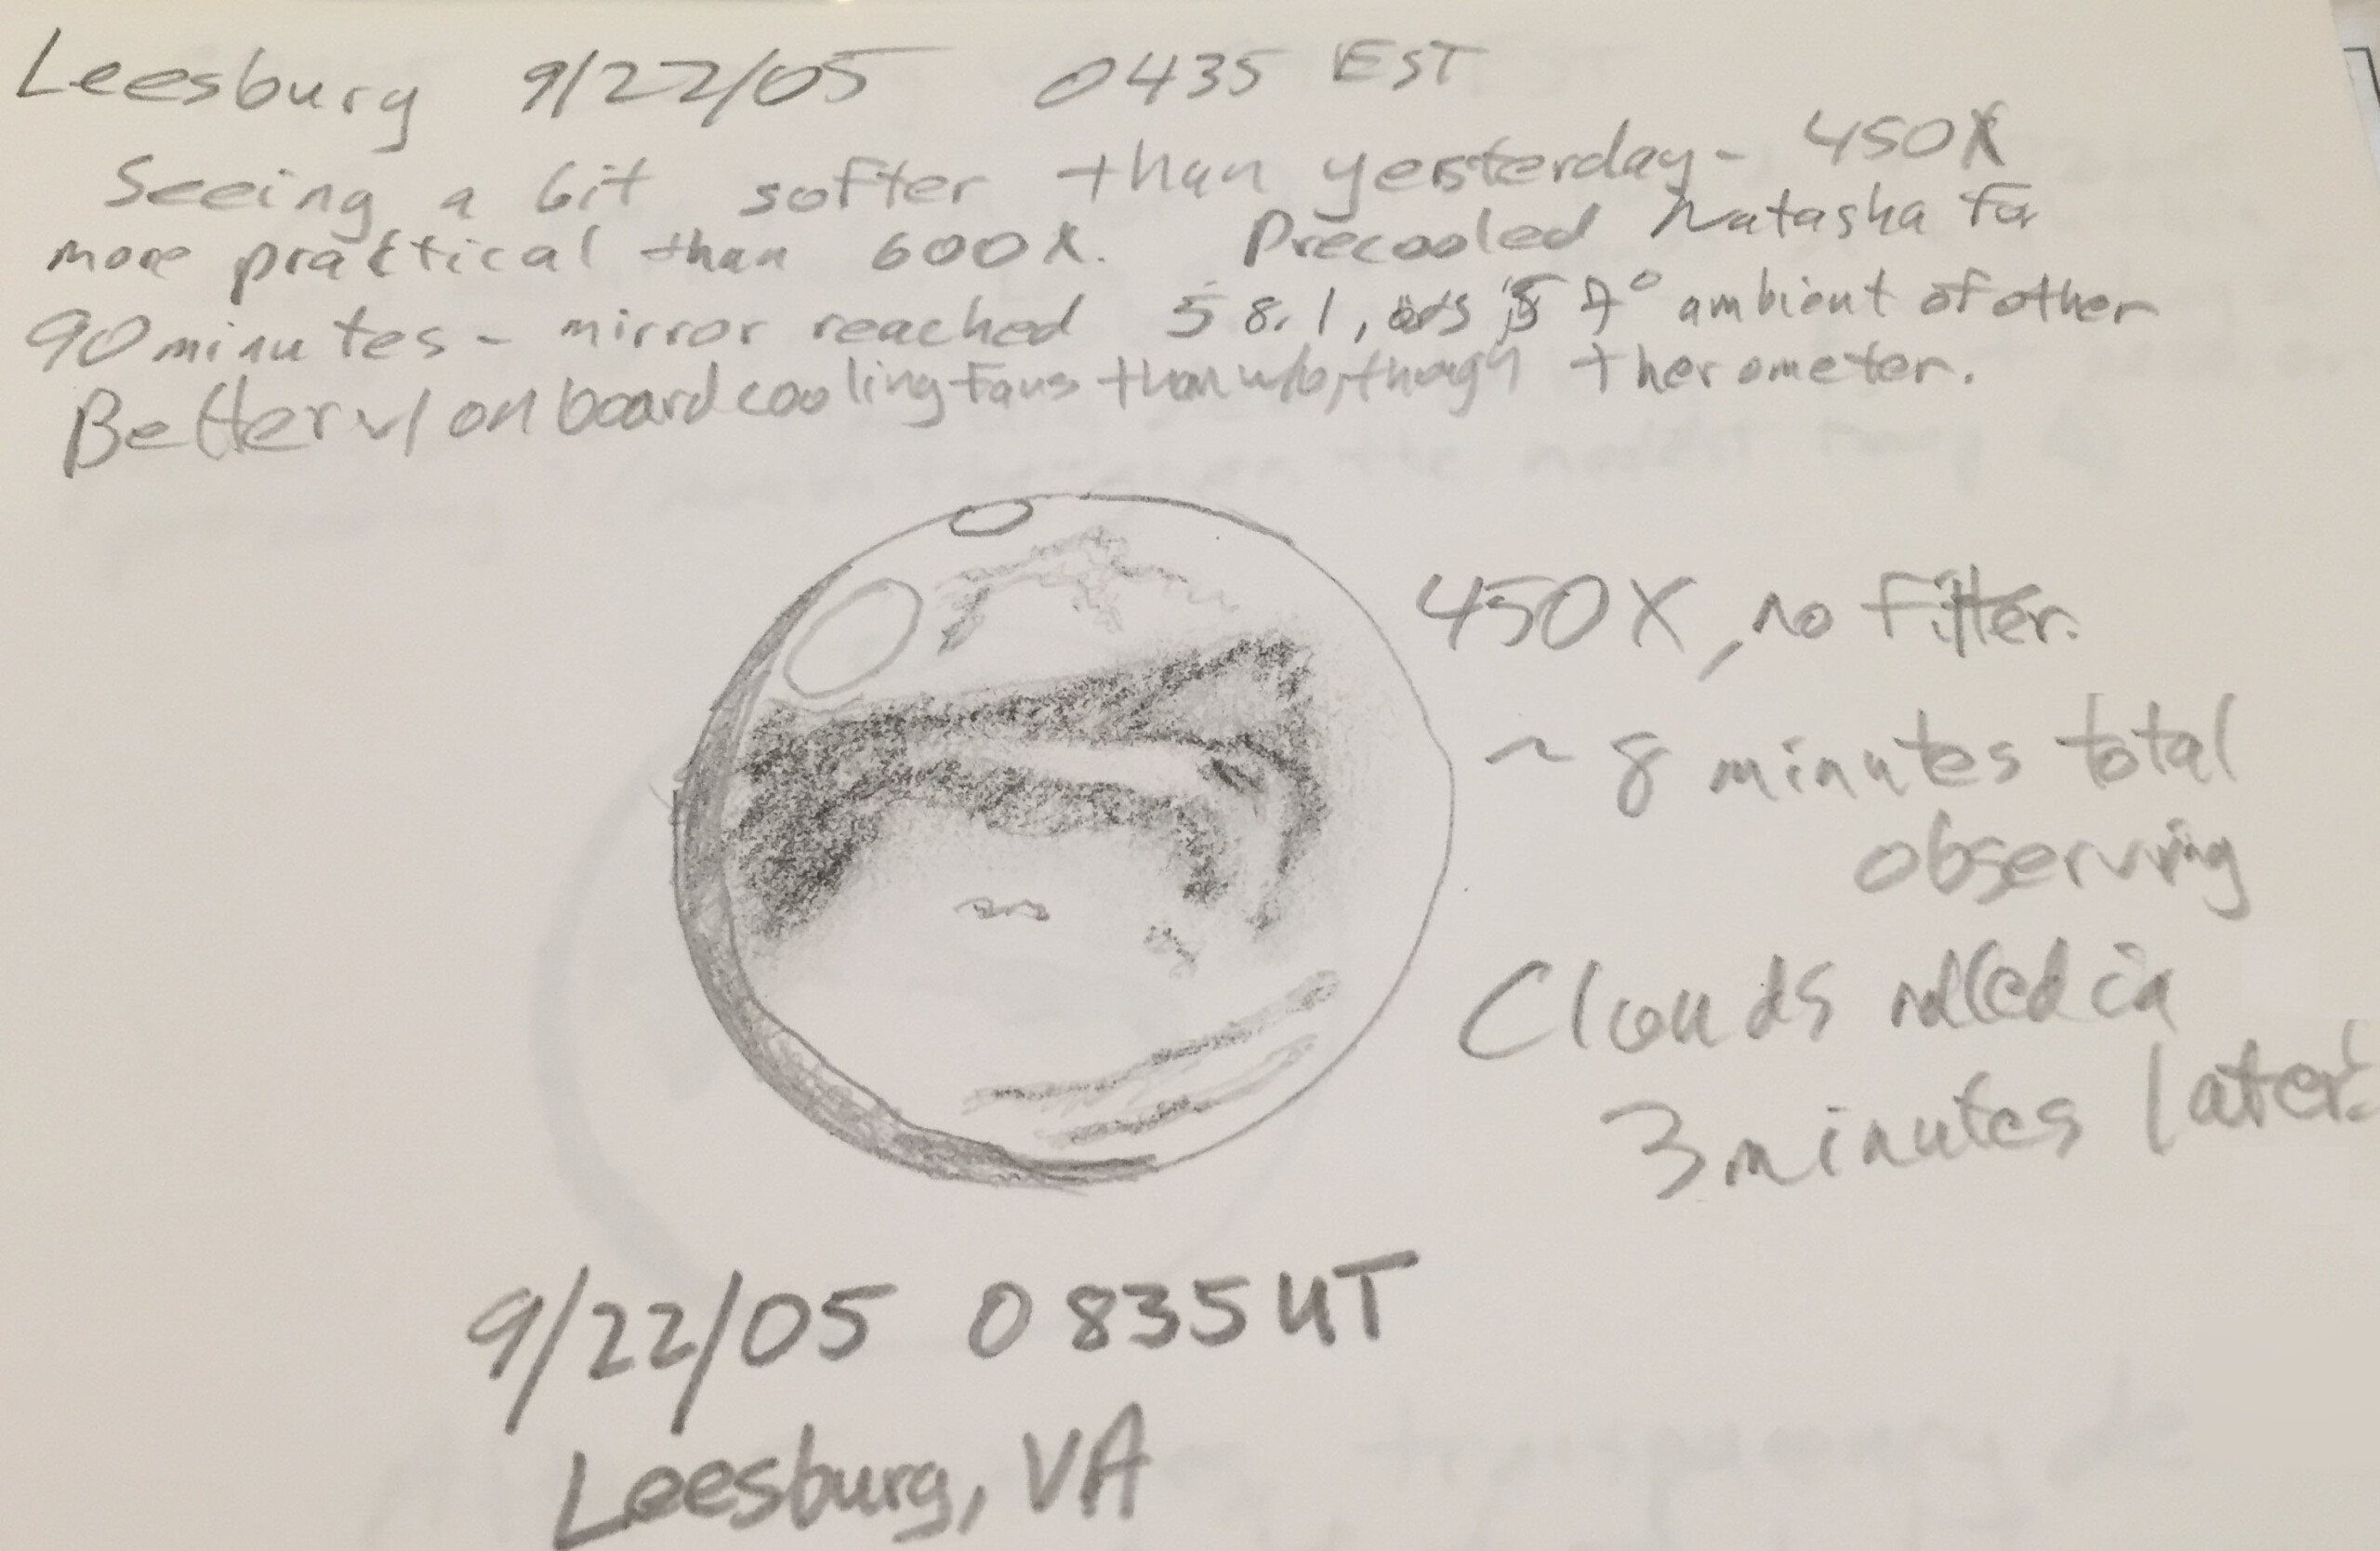 Leesburg 9/22/05 0435 EST
Seeing a bit softer than yesterday - 450X
more practical than 600X. Precooled Natasha for
90 minutes - mirror reached 58.1, 57° ambient of other
Better w/ on board cooling fans than w/o, though therometer.
450X, no filter.
~ 8 minutes total
observing
Clouds rolled in
3 minutes later!
9/22/05 0835 UT
Leesburg, VA